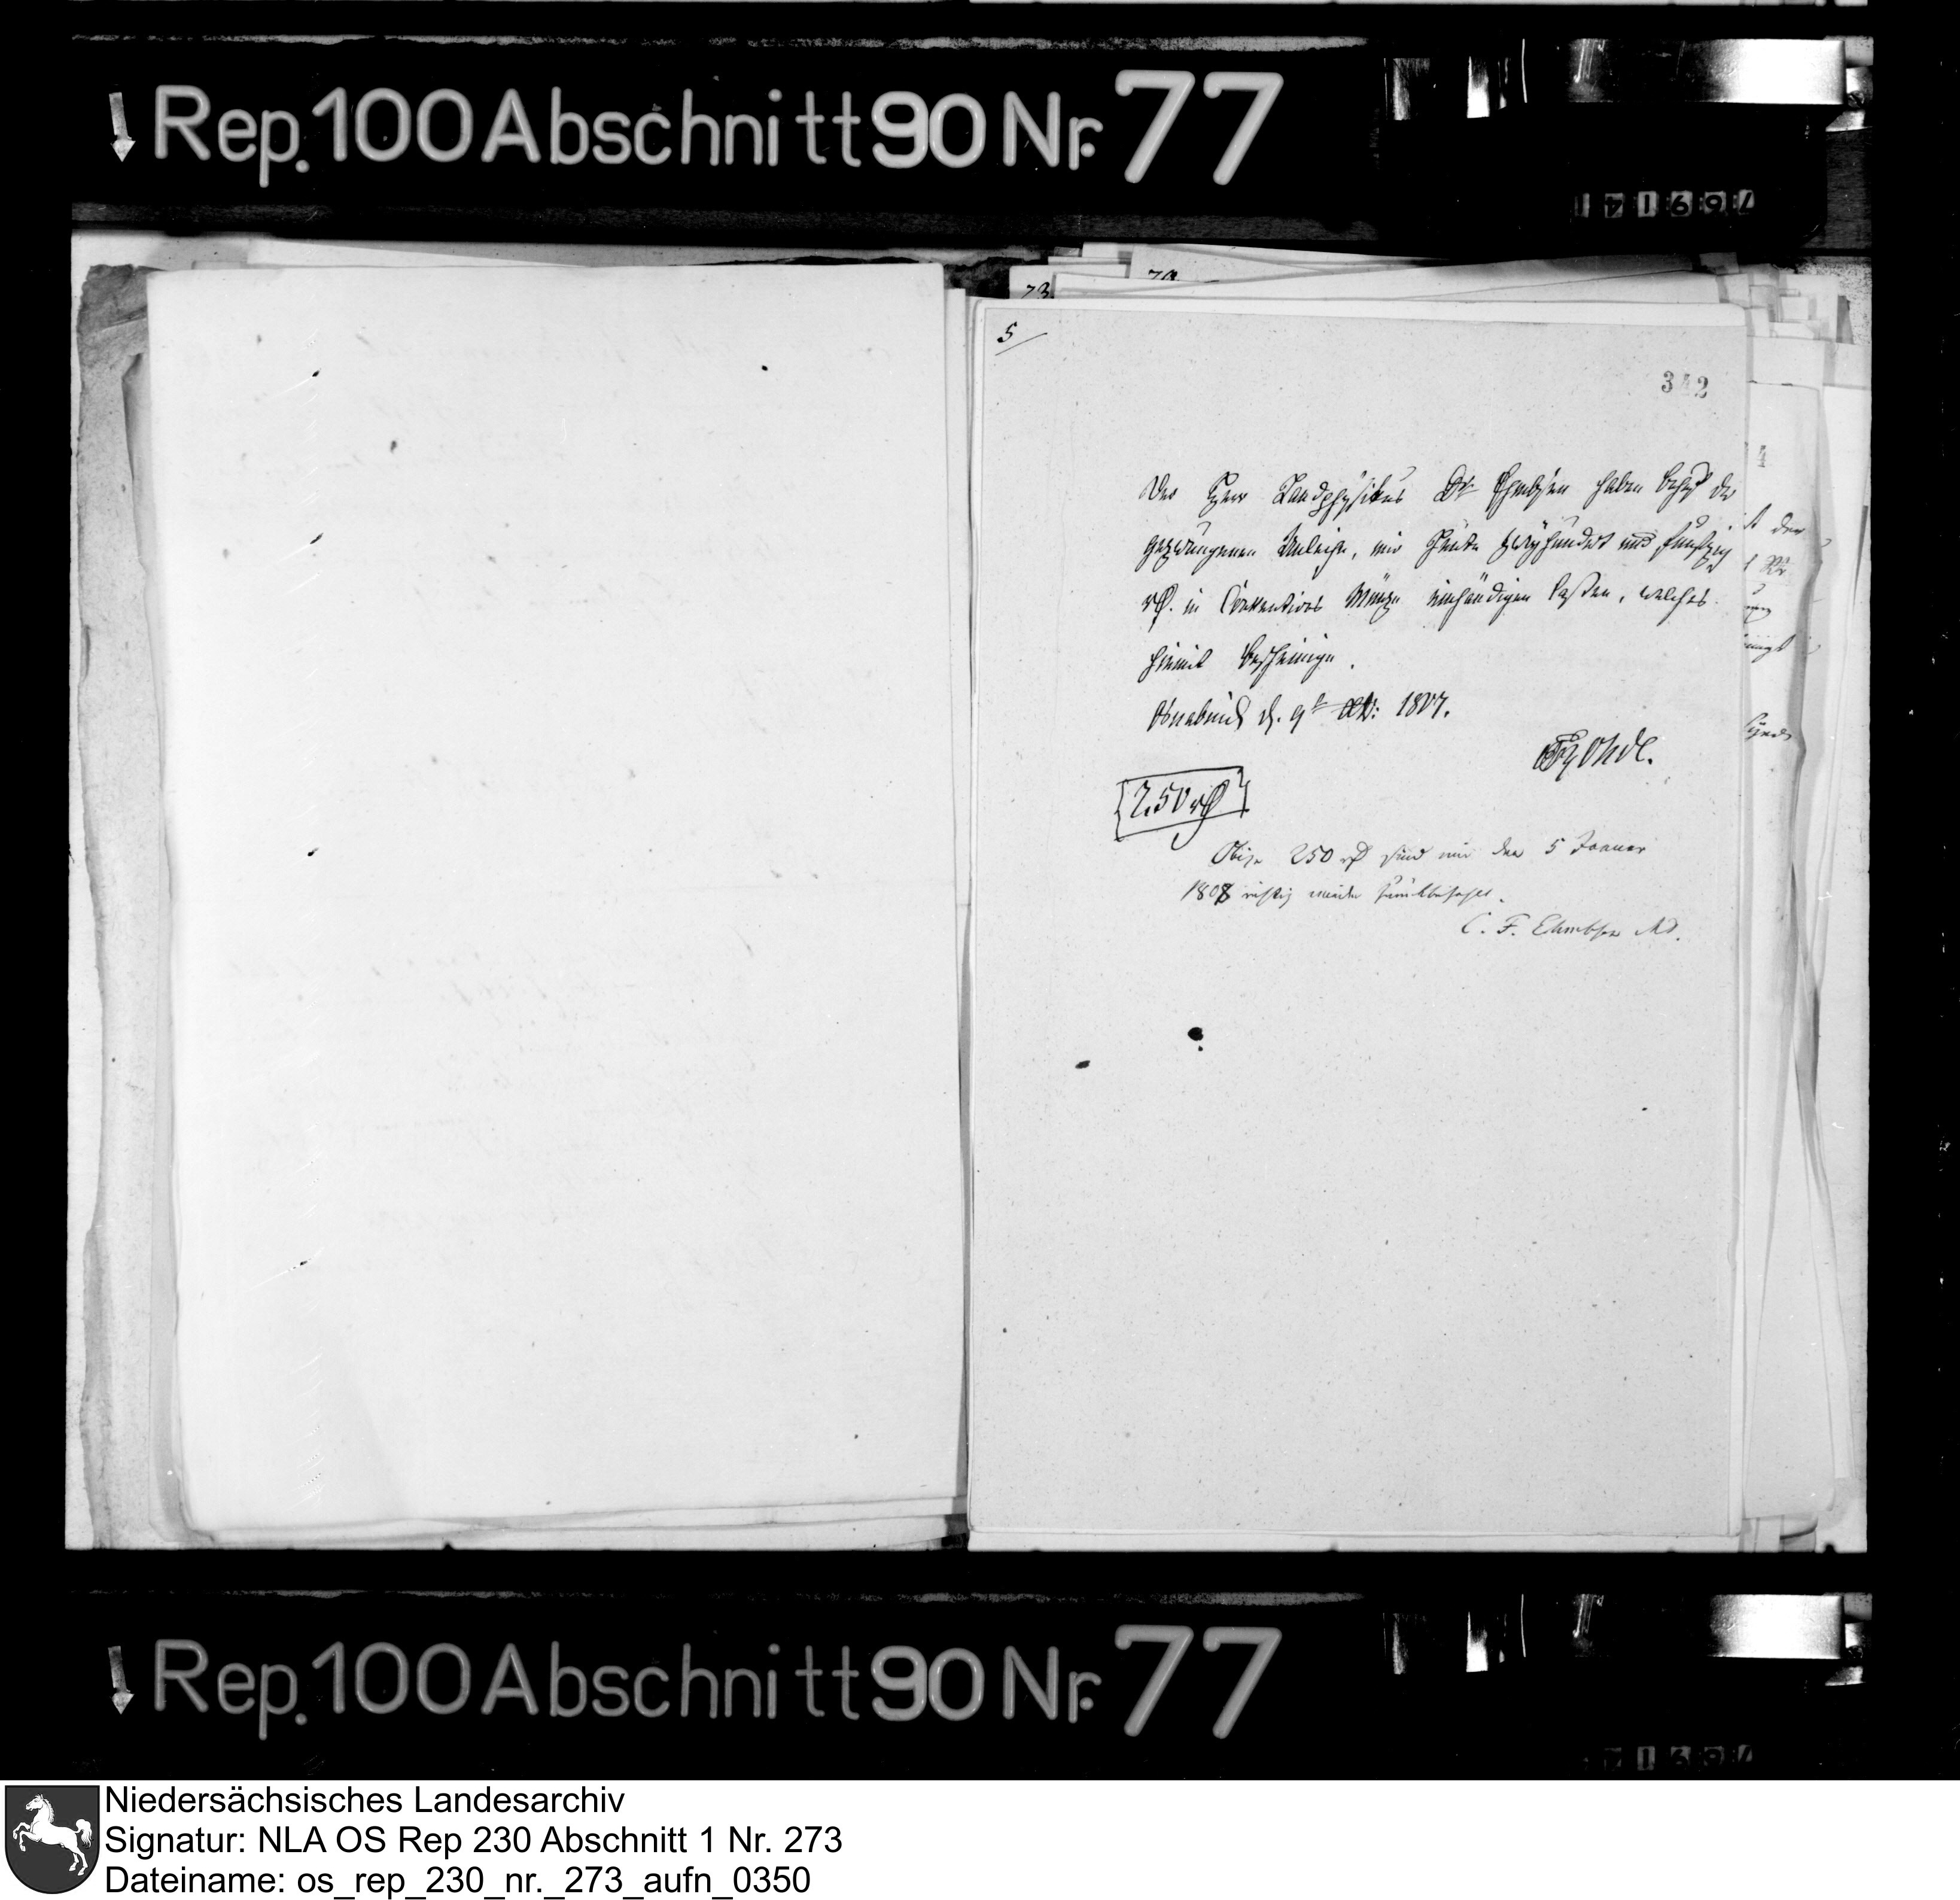 Rep. 100 Abschnitt 90 Nr. 77
73
70
5
342
Der Herr Landphysikus Dr Ehmbsen haben behuf der
gezwungenen Anleihe, mir heute zweyhundert und funfzig
rthl. in Conventions Münze einhändigen laßen, welches
hiemit bescheinige.
Osnabrück d. 9t 1807.
250 rthl
Obige 250 rthl sind mir den 5 Januar
1808 richtig wieder zurückbezahlt.
C. F. Ehmbsen MD.
Rep. 100 Abschnitt 90 Nr. 77
Niedersächsisches Landesarchiv
Signatur: NLA OS Rep 230 Abschnitt 1 Nr. 273
Dateiname: os_rep_230_nr._273_aufn_0350